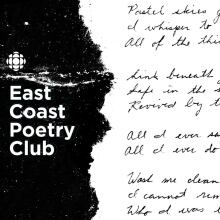 East
Coast
Poetry
Club
Pastel skies
I whisper to
All of the thi
sink beneath
Safe in the s
Revived by t
All I ever sa
All I ever do
Wash me clean
I cannot rem
Who I was b